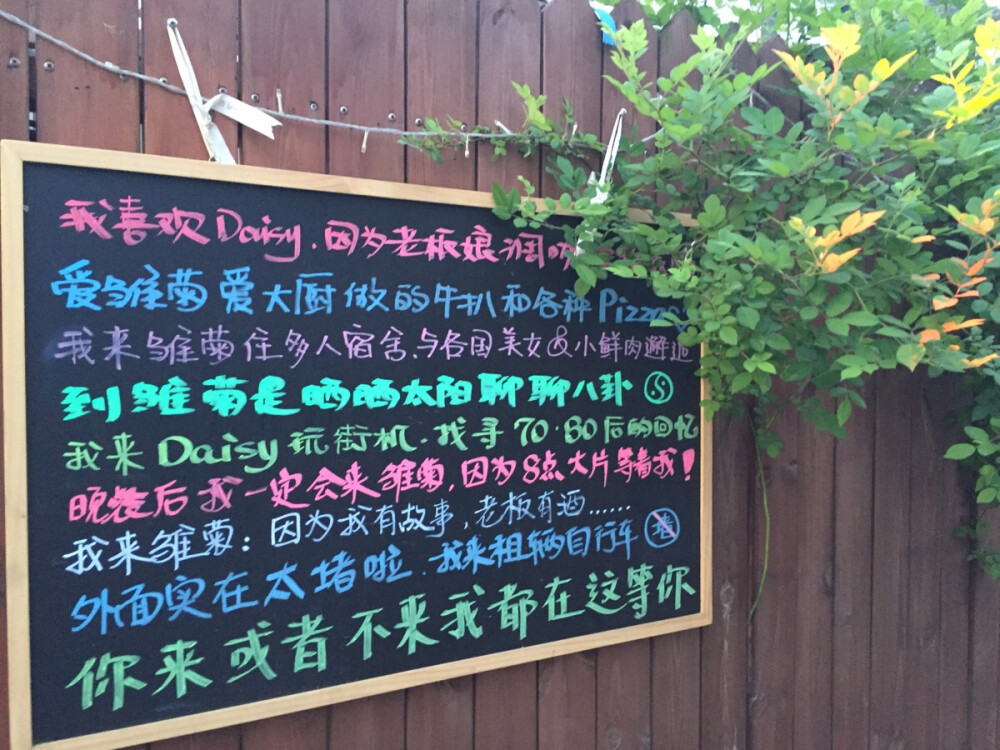 我喜欢Daisy.因为老板娘
爱雏菊爱大厨做的牛扒和各种Pizza
我来雏菊住多人宿舍.与各国美女&小鲜肉邂逅
到雏菊是晒晒太阳聊聊八卦
我来Daisy玩街机.找寻70.80后的回忆
晚餐后我一定会来雏菊,因为8点大片等着我!
我来雏菊:因为我有故事,老板有酒......
外面实在太堵啦.我来租辆自行车 堵
你来或者不来我都在这等你